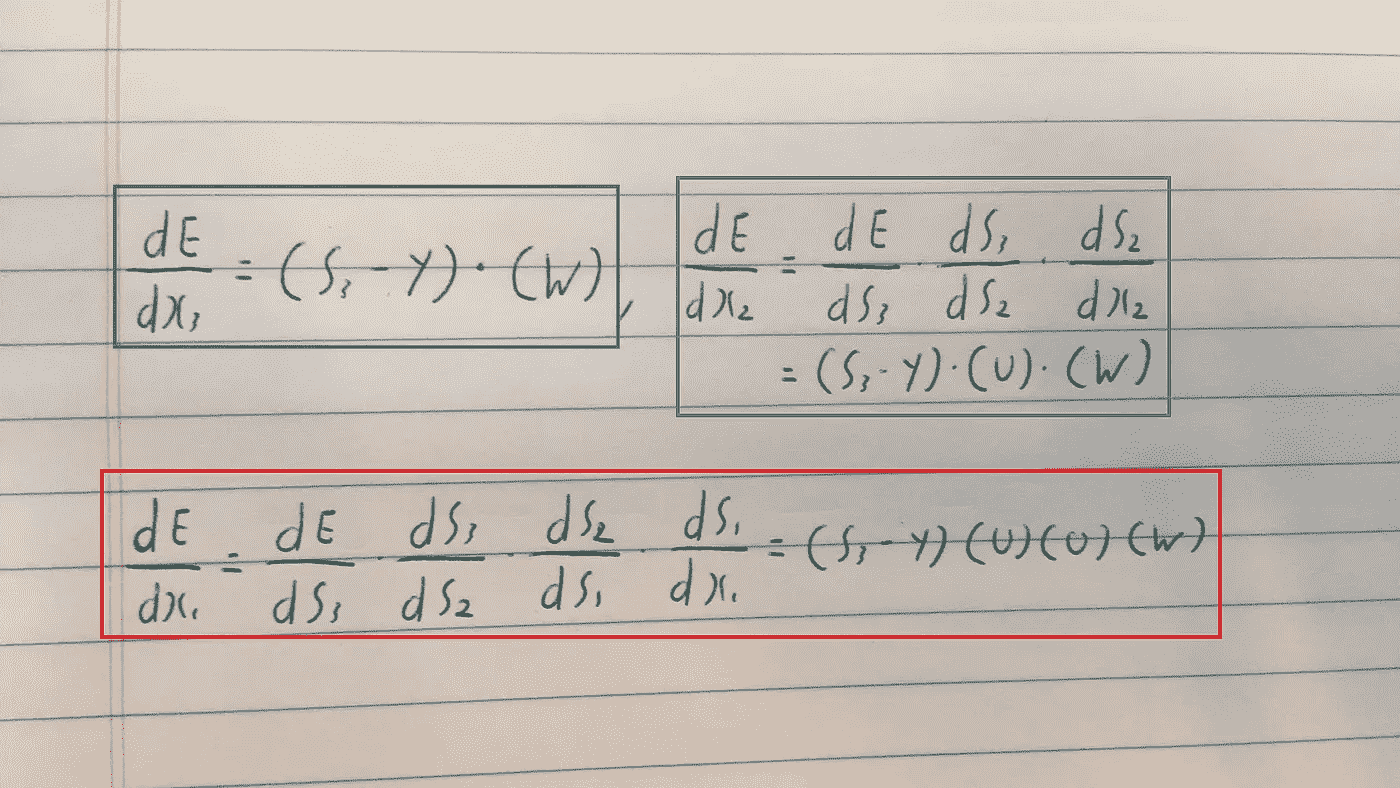 dE/dx₃ = (S₃ - Y) · (W) ,
dE/dx₂ = dE/dS₃ · dS₃/dS₂ · dS₂/dx₂
= (S₃ - Y) · (U) · (W)
dE/dx₁ = dE/dS₃ · dS₃/dS₂ · dS₂/dS₁ · dS₁/dx₁ = (S₃ - Y) (U) (U) (W)